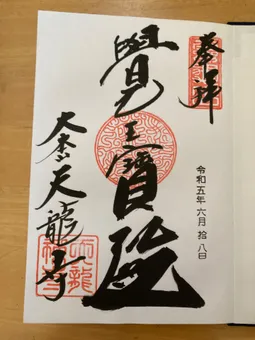 奉拝
令和五年六月拾八日
覺王寶殿
大本山天龍寺